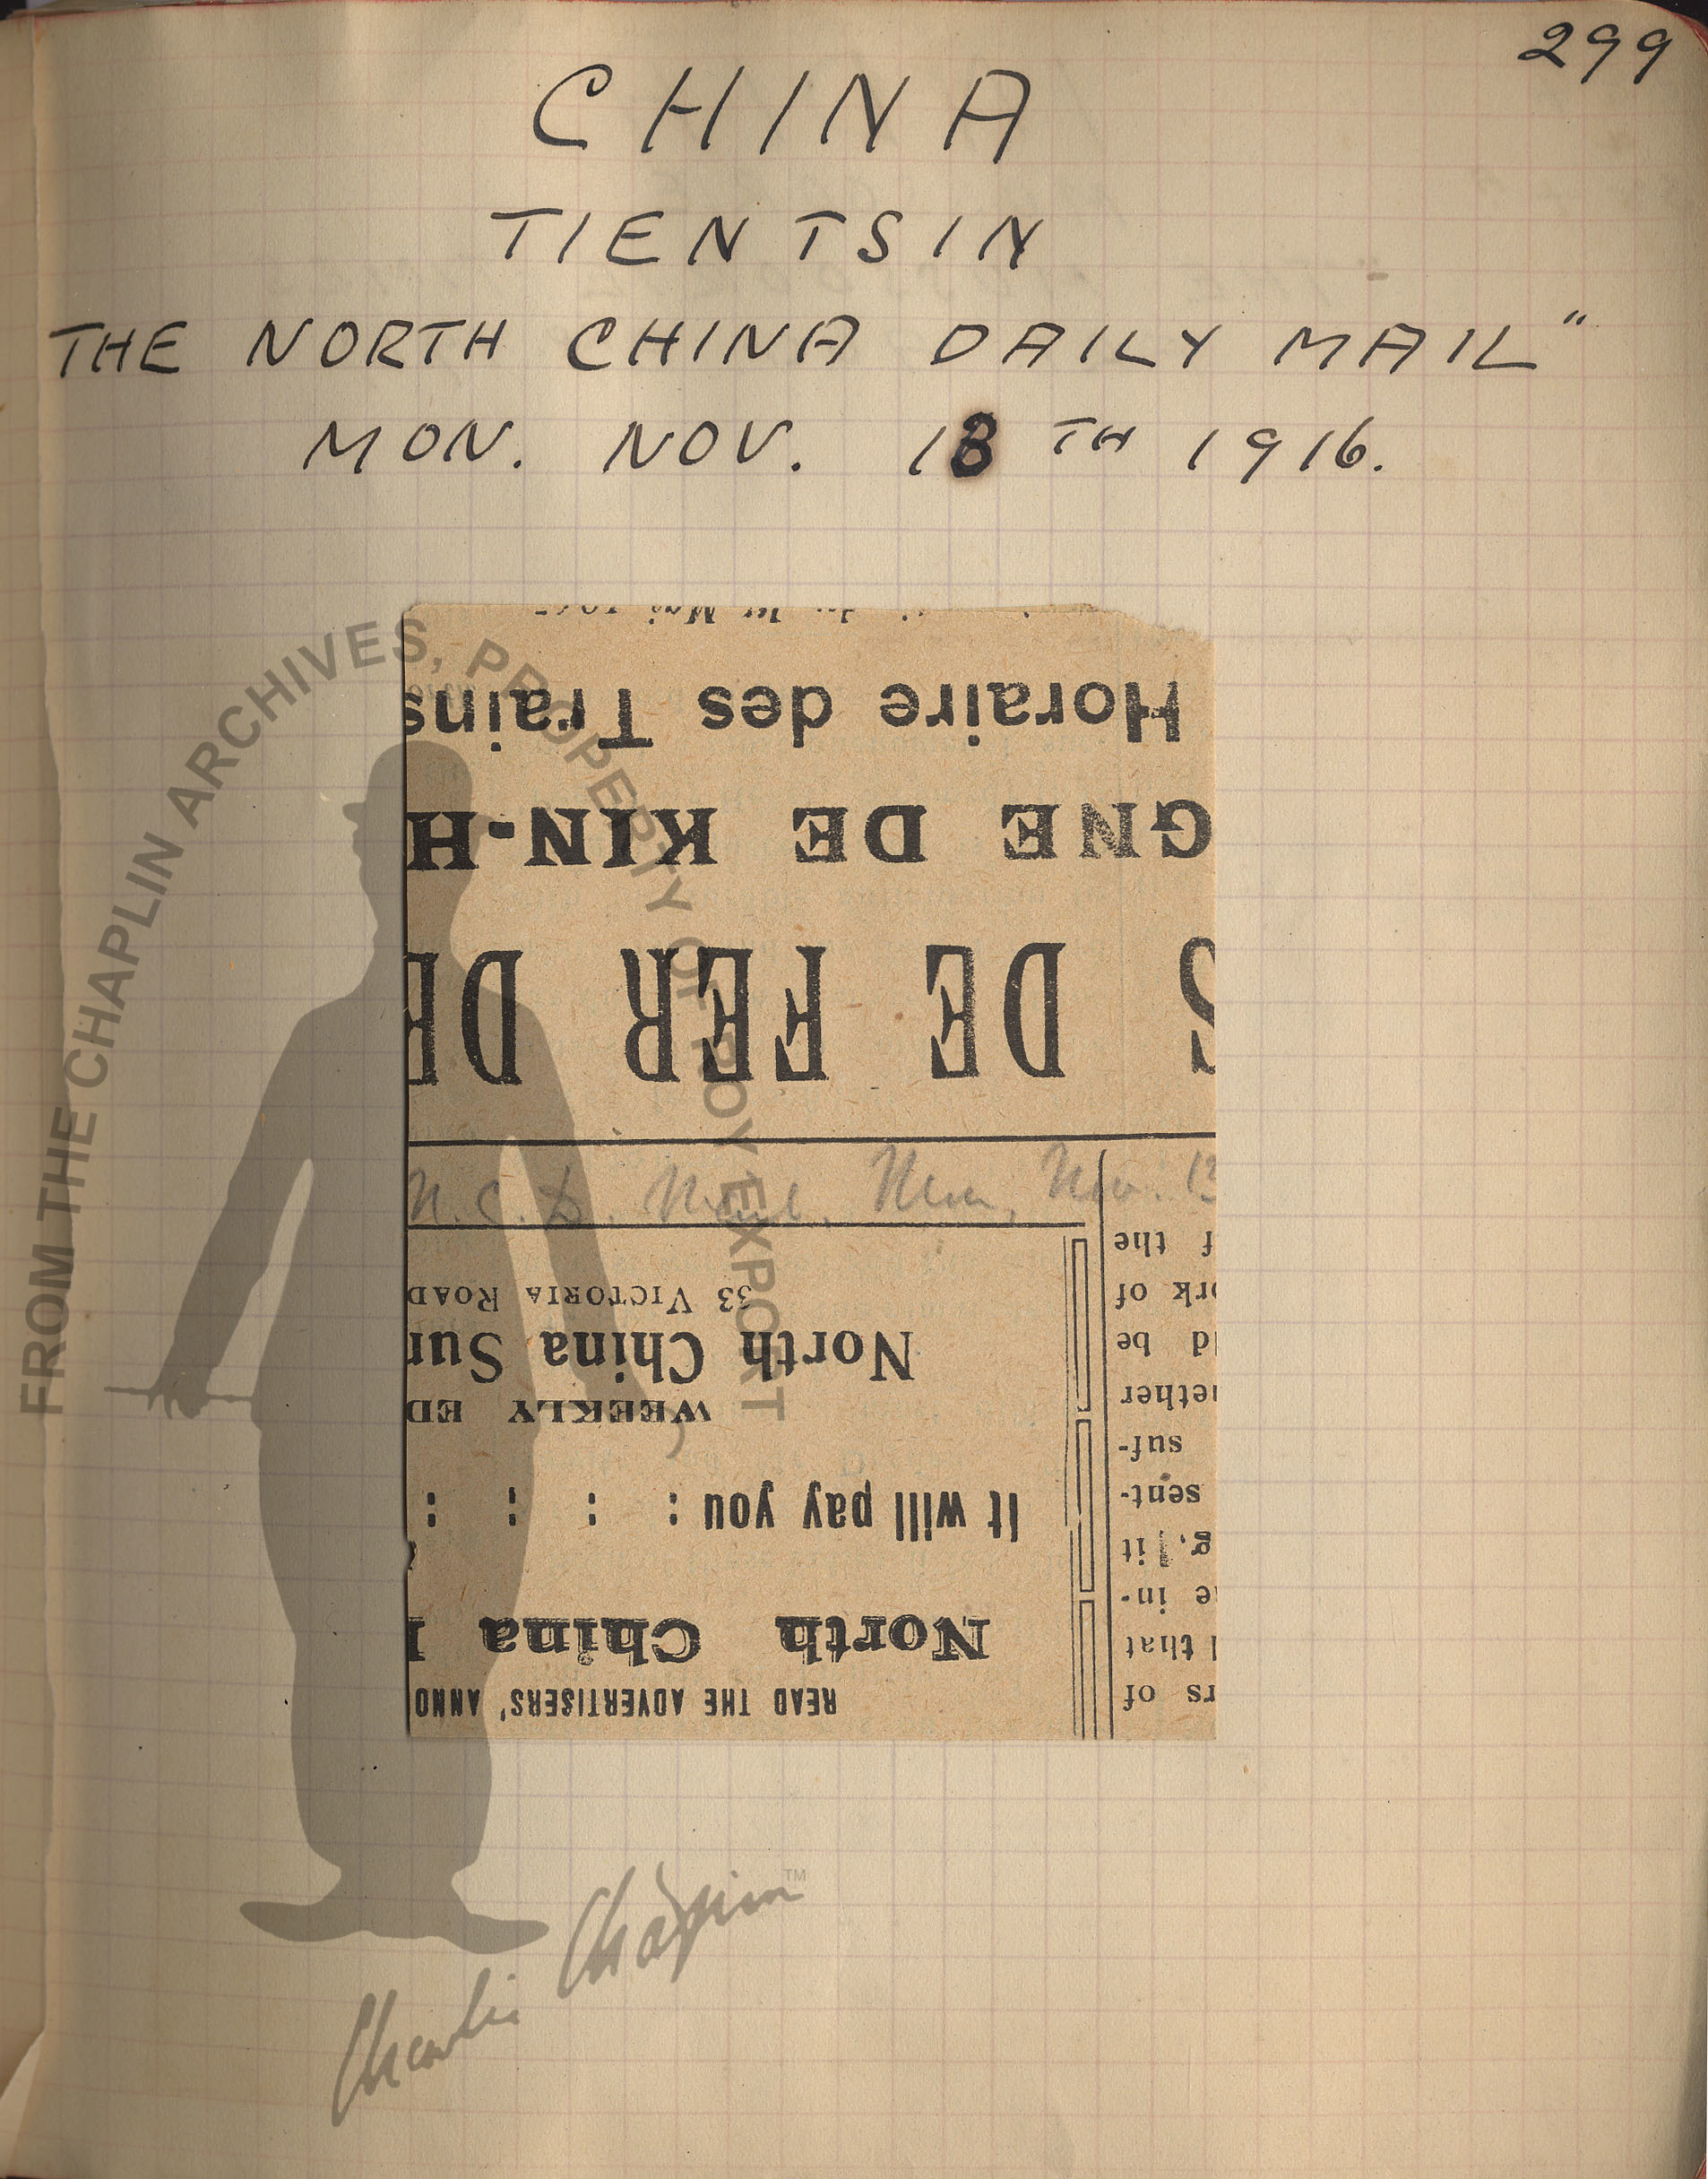 299
CHINA
TIENTSIN
THE NORTH CHINA DAILY MAIL"
MON. NOV. 13TH 1916.
READ THE ADVERTISERS' ANNO
North China
It will pay you : : : :
WEEKLY ED
North China Sun
33 VICTORIA ROAD
N. C. D. Mail, Mon, Nov. 13
rs of
that
e in-
g, it
sent-
suf-
ether
d be
rk of
f the
S DE FER DE
GNE DE KIN-H
Horaire des Trains
FROM THE CHAPLIN ARCHIVES, PROPERTY OF ROY EXPORT
Charlie Chaplin™